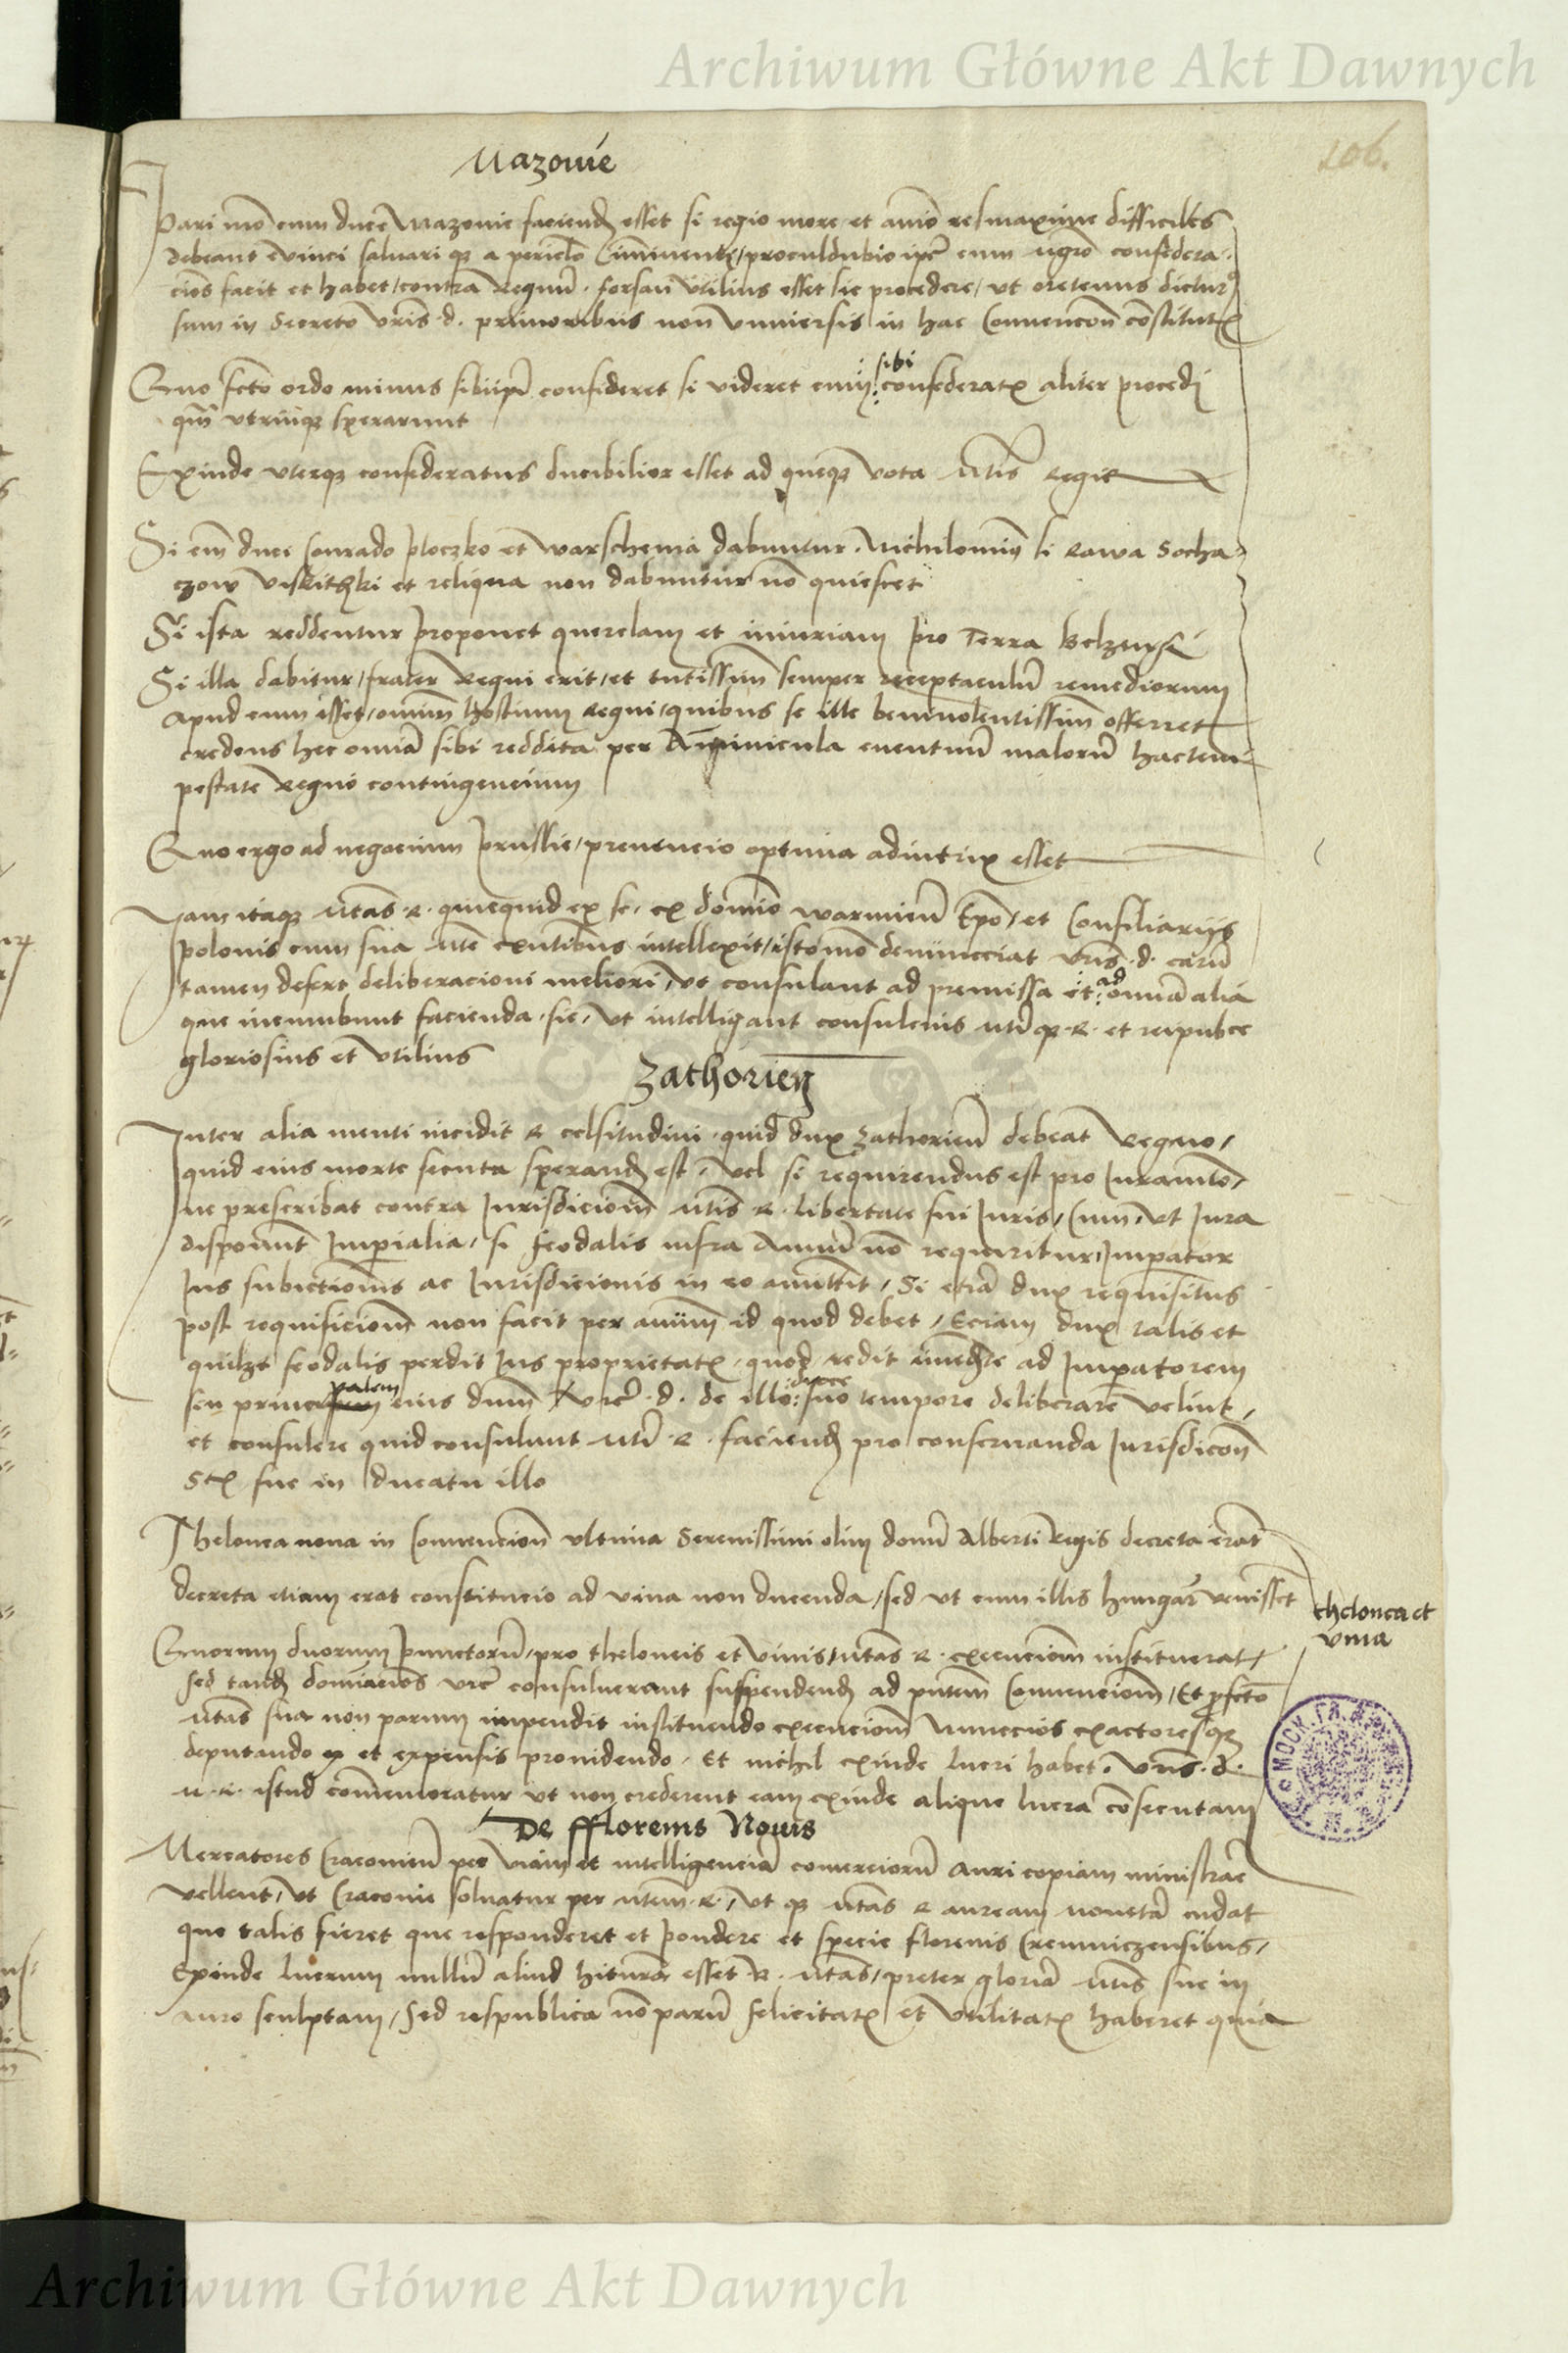 Archiwum Główne Akt Dawnych
106.
Mazouie
Pari mō cum duce Mazouie faciend esset si regio more et amō res maxime difficiles
debeant evinci saluari q a periclo imminenti / proculdubio ipe cum ugro confedera-
cioēs facit et habet / contra Regnū . forsan utilius esset sic procedere / ut oretenus dictur9
sum in Secreto vris . d . primoribus non vniuersis in hac Conuencōn cōstitut
Quo fcto ordo minus sibi ipi consideret si videret cum sibi confederat aliter procedi
qm vtrinq sperarunt
Exinde uterq confederatus ducibilior esset ad queq vota Mtis Regie
Si em duci Conrado ploczko et warschouia dabuntur . Nichilomin9 si Rawa Socha-
czow viskithki et reliqua non dabuntur nō quiescet
Si ista reddentur proponet querelam et iniuriam pro Terra Belzensi
Si illa dabitur / frater Regni erit / et tutissim semper receptaculū remediorum
apud eum esset / omnim hostium Regni / quibus se ille beniuolentissim offerret
credens hec omia sibi reddita per Aminicula euentuū malorū hac tem-
pestate Regno contingencium
Quo ergo ad negocium prussie / preuencio optima adiutrix esset
Jam itaq Mtas . R . quicquid ex se . ex domio warmien Epo / et Consiliarys
polonis cum sua Mte exntibus intellexit / isto mō denuncciat vris . d . carū
tamen defert deliberacioni meliori , ut consulant ad premissa et ad omia alia
que incumbunt facienda . sic , ut intelligant consulenis Mti q . R . et reipubce
gloriosius et utilius
Zathorien
Inter alia menti incidit R celsitudini . quid dux Zathorien debeat Regno /
quid eius morte secuta sperand est , vel si requirendus est pro Juramto ,
ne prescribat contra Jurisdiciom Mtis R . libertate sui Juris , Cum , ut Jura
disponunt Imperialia , si feodalis infra Annū nō requiritur , Impator
Jus subiectionis ac Jurisdicionis in eo amittit , Si etiā dux requisitus
post requisiciom non facit per annum id quod debet , Eciam dux talis et
quilzt feodalis perdit Jus proprietat , quod redit inmedte ad Impatorem
seu principalem eius dum vre . d . de illo duce suo tempore deliberare velint ,
et consulere quid consulunt Mti . R . faciend pro conseruanda Jurisdicon
Sct sue in ducatu illo
Thelonea noua in Conuencion ultima Serenissimi olim domi Alberti Regis decreta erat
decreta etiam erat constitucio ad vina non ducenda , sed ut cum illis hungari venisset
thelonea et
vina
Quorum duorum punctorū , pro theloneis et vinis , Mtas R . execuciom instituerat ,
sed tand domiacioes vre consuluerant suspendend ad pntem Conuenciom , Et pfcto
Mtas sua non parum impendit instituendo execuciom Nunccios exactoresq
deputando et expensis prouidendo . Et nichil exinde lucri habet . vris . d .
M . R . istud commemoratur ut non crederent eam exinde aliqua lucra cōsecutam
De fflorenis Nouis
Mercatores Cracouien per viam et intelligenciā comerciorū auri copiam ministrare
vellent , ut Cracouie soluatur per Mtem . R . , ut q Mtas R auream monetā cudat
que talis fieret que responderet et pondere et specie florenis Cremniczensibus ,
Exinde lucrum nullū aliud hitura esset R . Mtas , preter gloriā Mtis sue in
auro sculptam , sed respublica nō parū felicitat et utilitat haberet quia
Archiwum Główne Akt Dawnych